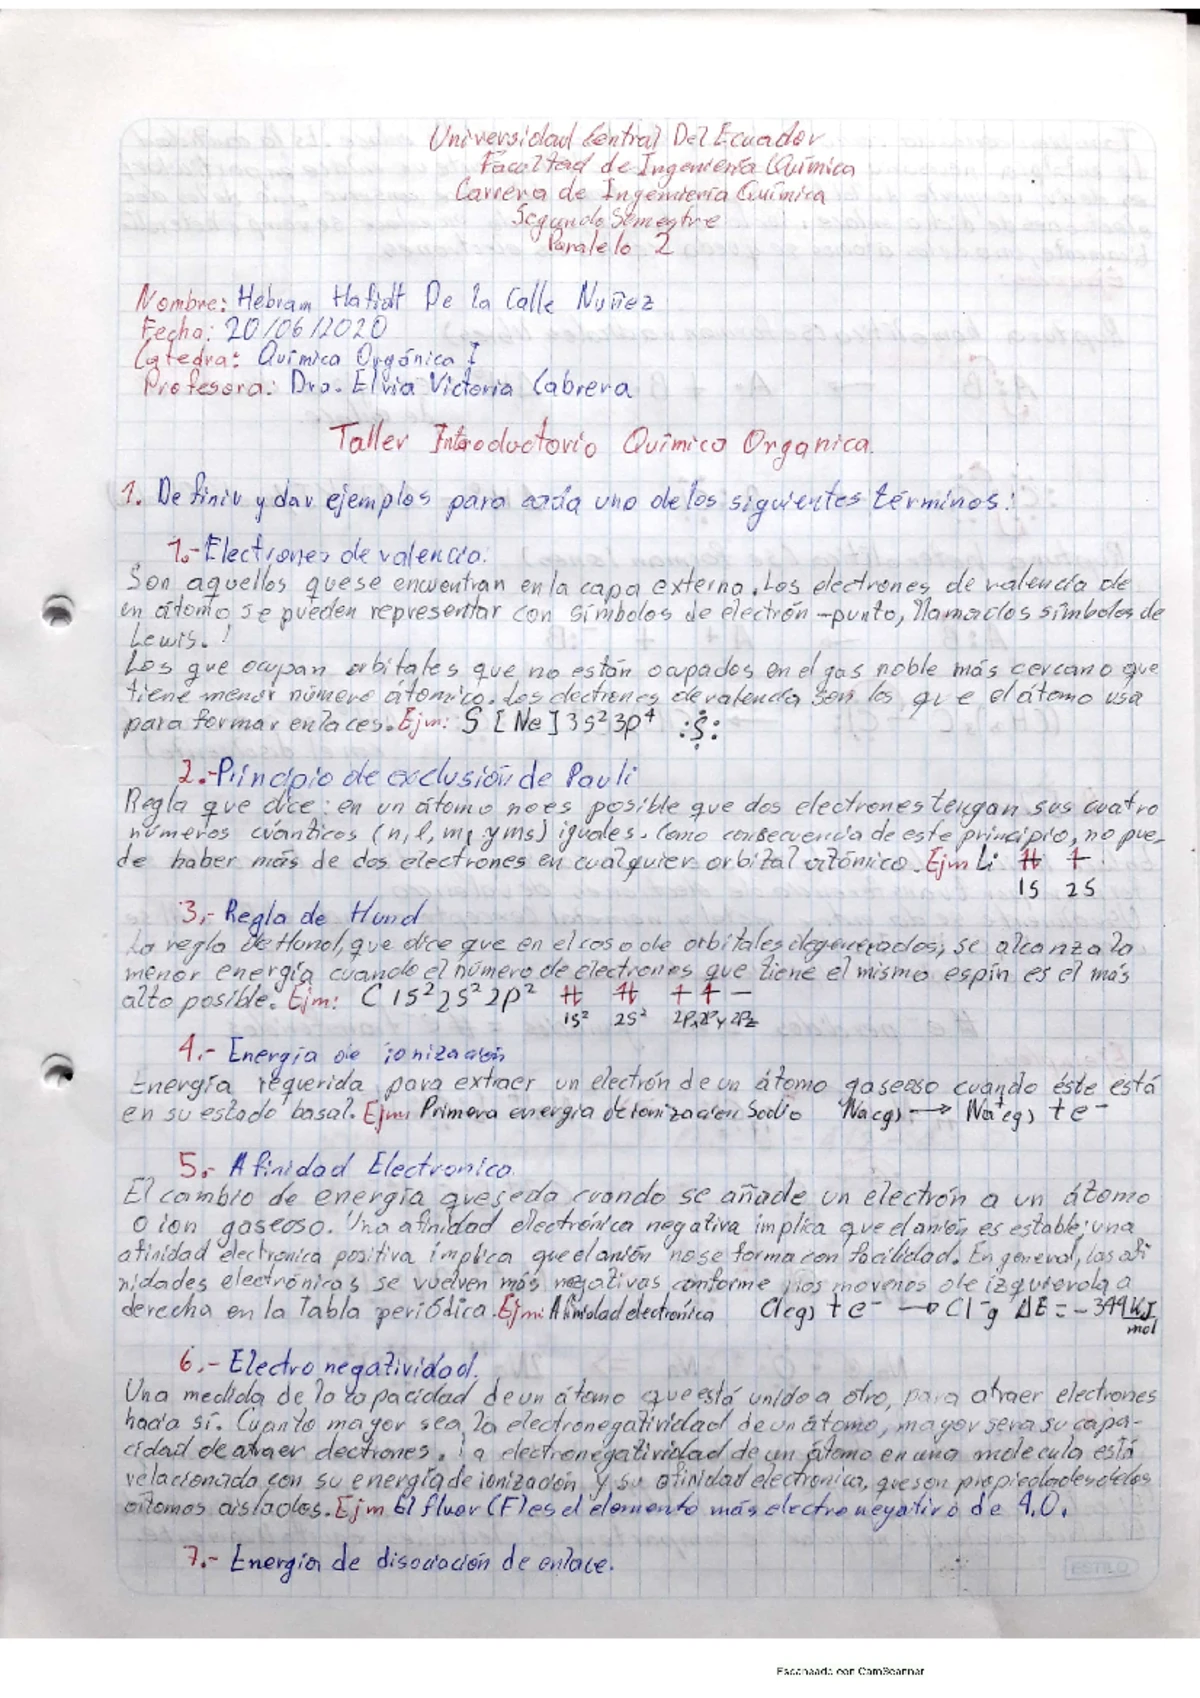 Universidad Central Del Ecuador
Facultad de Ingeniería Química
Carrera de Ingeniería Química
Segundo Semestre
Paralelo 2
Nombre: Hebram Hafidt De la Calle Nuñez
Fecha: 20/06/2020
Catedra: Química Orgánica I
Profesora: Dra. Elvia Victoria Cabrera
Taller Introductorio Químico Organica.
1. Definir y dar ejemplos para cada uno de los siguientes términos:
1.-Electrones de valencia.
Son aquellos que se encuentran en la capa externa. Los electrones de valencia de
un átomo se pueden representar con símbolos de electrón -punto, llamados símbolos de
Lewis.
Los que ocupan orbitales que no están ocupados en el gas noble más cercano que
tiene menor número átomico. Los electrones de valencia son los que el átomo usa
para formar enlaces. Ejm: S [Ne] 3s² 3p⁴ :S:
2.-Principio de exclusión de Pauli
Regla que dice: en un átomo no es posible que dos electrones tengan sus cuatro
números cuánticos (n, l, ml y ms) iguales. Como consecuencia de este principio, no pue-
de haber más de dos electrones en cualquier orbital atómico. Ejm Li
1S 2S
3.- Regla de Hund
La regla de Hund, que dice que en el caso de orbitales degenerados, se alcanza la
menor energía cuando el número de electrones que tiene el mismo espín es el más
alto posible. Ejm: C 1S² 2S² 2P²
1s² 2S² 2Px 2Py 2Pz
4.- Energía de ionización
Energía requerida para extraer un electrón de un átomo gaseoso cuando éste está
en su estado basal. Ejm: Primera energia de ionización Sodio Na(g) → Na⁺(g) + e⁻
5.- Afinidad Electronica.
El cambio de energía que se da cuando se añade un electrón a un átomo
o ion gaseoso. Una afinidad electrónica negativa implica que el anión es estable; una
afinidad electronica positiva implica que el anión no se forma con facilidad. En general, las afi
nidades electrónicas se vuelven más negativas conforme nos movemos de izquierda a
derecha en la Tabla periódica. Ejm: Afinidad electrónica Cl(g) + e⁻ → Cl⁻g ΔE = -349 KJ
mol
6.- Electronegatividad.
Una medida de la capacidad de un átomo que está unido a otro, para atraer electrones
hacia sí. Cuanto mayor sea la electronegatividad de un átomo, mayor sera su capa-
cidad de atraer electrones. La electronegatividad de un átomo en una molecula está
relacionada con su energía de ionización y su afinidad electronica, que son propiedades de los
átomos aislados. Ejm El fluor (F) es el elemento más electronegativo de 4.0.
7.- Energía de disociación de enlace.
ESTILO
Escaneado con CamScanner